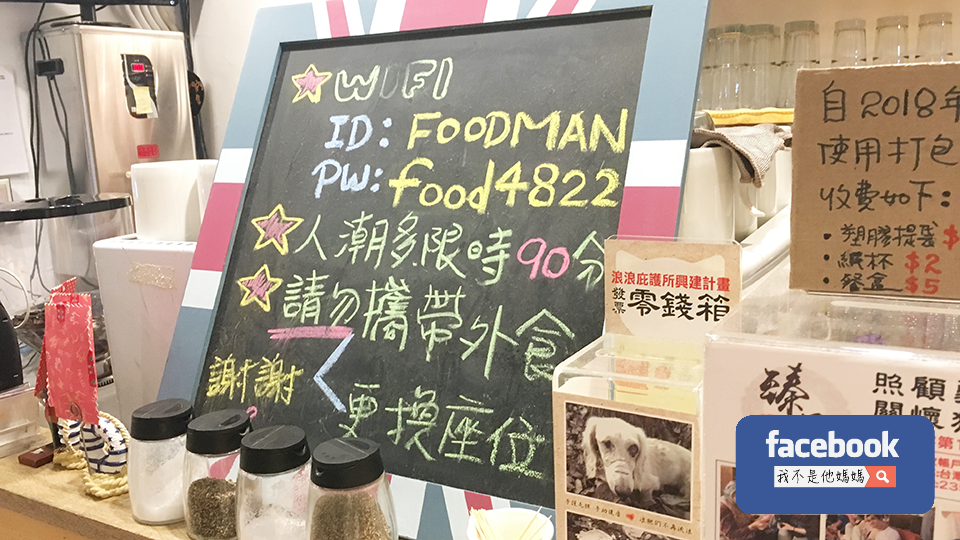 WIFI
ID: FOODMAN
PW: food4822
人潮多限時90分
請勿攜帶外食
更換座位
謝謝
自2018年
使用打包
收費如下:
• 塑膠提袋 $
• 紙杯 $2
• 餐盒 $5
浪浪庇護所興建計畫
發票
零錢箱
臻
照顧
關懷
facebook
我不是他媽媽